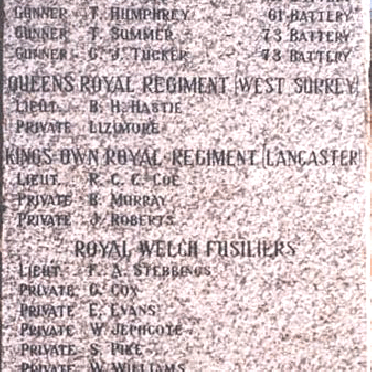 GUNNER T. HUMPHREY - 61 BATTERY
GUNNER T. SUMMER - 73 BATTERY
GUNNER C. J. TUCKER - 73 BATTERY
QUEENS ROYAL REGIMENT (WEST SURREY)
LIEUT. B. H. HASTIE
PRIVATE LIZIMORE
KINGS OWN ROYAL REGIMENT (LANCASTER)
LIEUT. R. C. C. COE
PRIVATE B. MURRAY
PRIVATE J. ROBERTS
ROYAL WELCH FUSILIERS
LIEUT. F. A. STEBBINGS
PRIVATE G. COX
PRIVATE E. EVANS
PRIVATE W. JEPHCOTE
PRIVATE S. PIKE
PRIVATE W. WILLIAMS